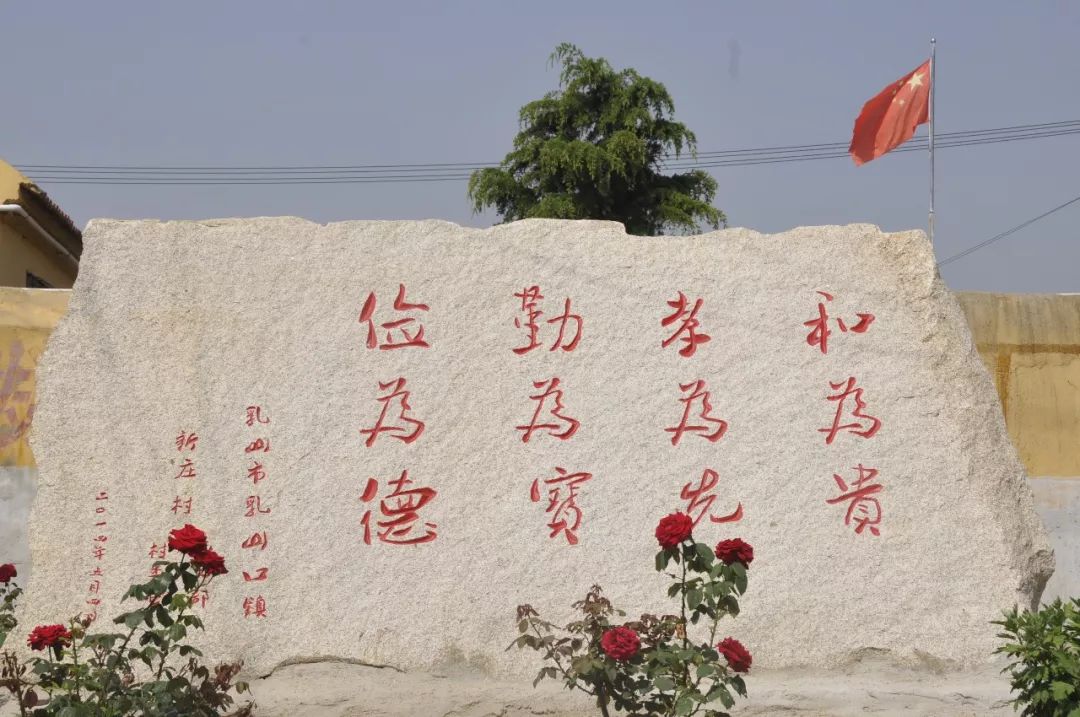 和為貴
孝為先
勤為寶
俭為德
乳山市乳山口鎮
新庄村部
村
二〇一四年五月四